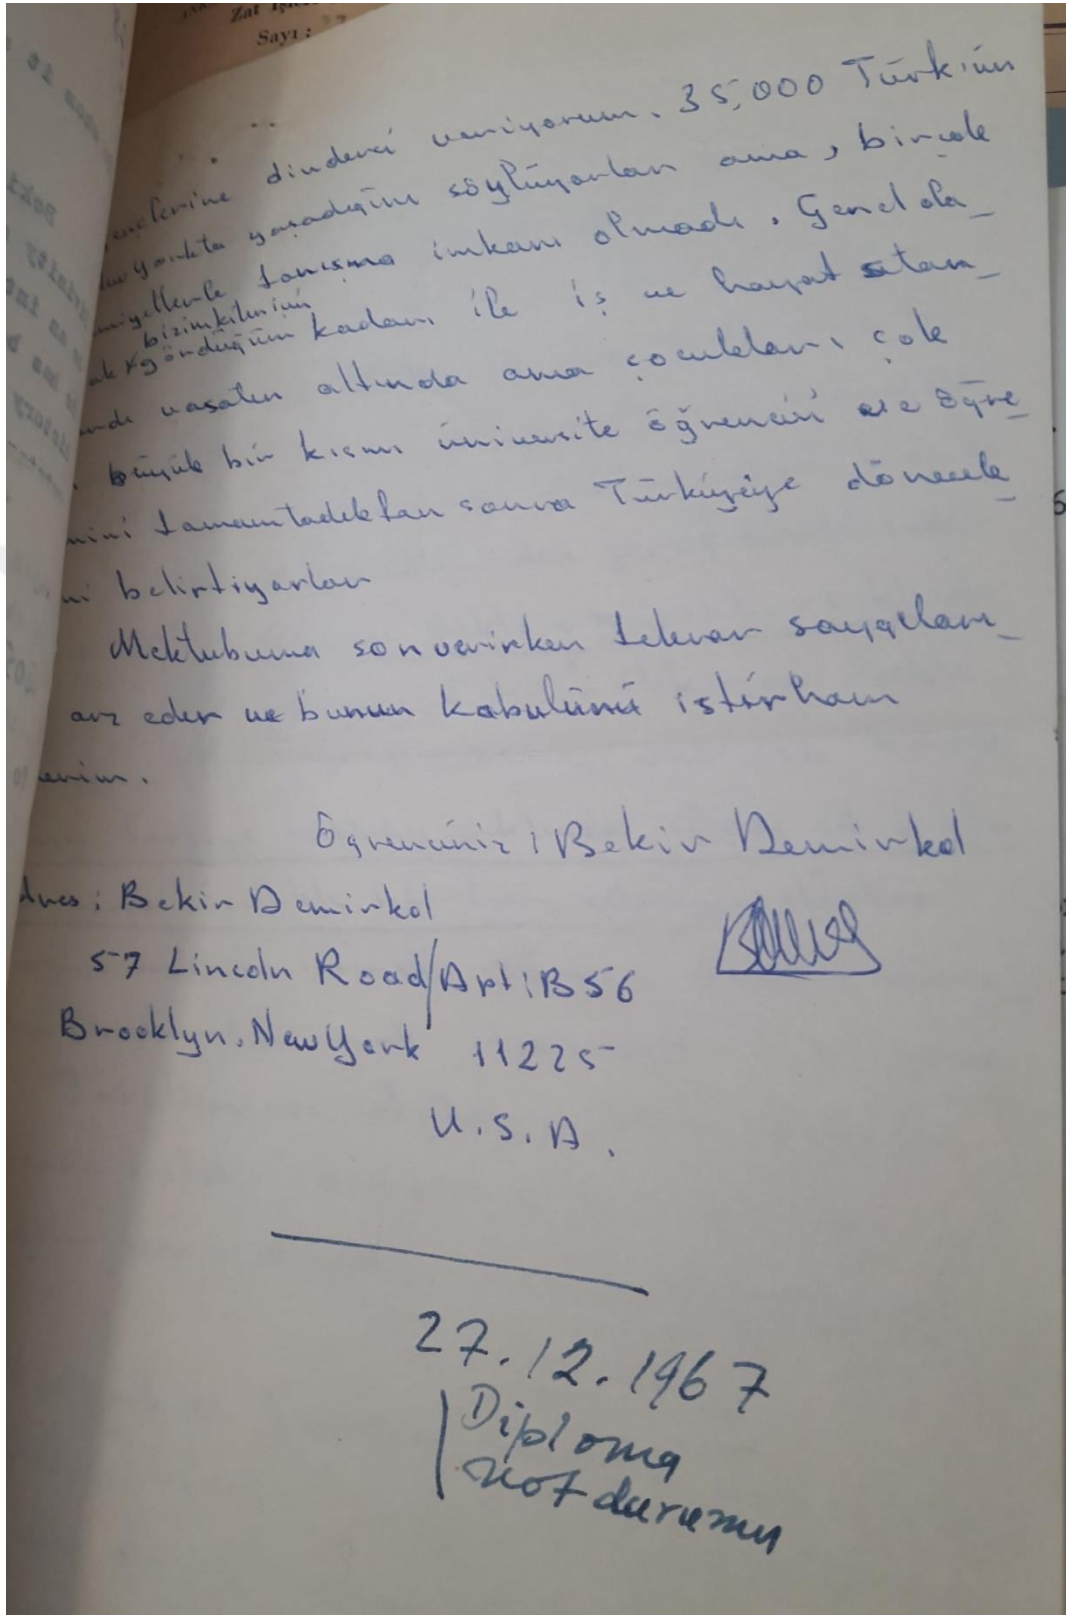 Zat İşleri
Sayı :
dindersi veriyorum. 35.000 Türkün
yaşadığını söylüyorlar ama, birçok
tanışma imkanı olmadı. Genel ola_
bizimkilerin
gördüğüm kadarı ile iş ve hayat stan_
vasatın altında ama çocukları çok
büyük bir kısmı üniversite öğrencisi ve öğre_
nini tamamladıktan sonra Türkiyeye dönecek_
ni belirtiyorlar
Mektubuma son verirken tekrar saygıları_
arz eder ve bunun kabulünü istirham
erim.
Öğrenciniz : Bekir Demirkol
dres : Bekir Demirkol
57 Lincoln Road/Apt : B56
Brooklyn. New York 11225
U.S.A.
27.12.1967
Diploma
not durumu